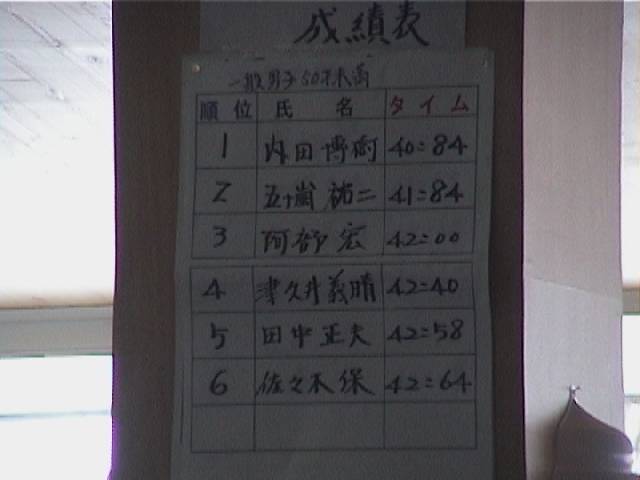 成績表
一般男子50才未満
順位 氏名 タイム
1 内田博樹 40:84
2 五十嵐祐二 41:84
3 阿部宏 42:00
4 津久井義晴 42:40
5 田中正夫 42:58
6 佐々木保 42:64